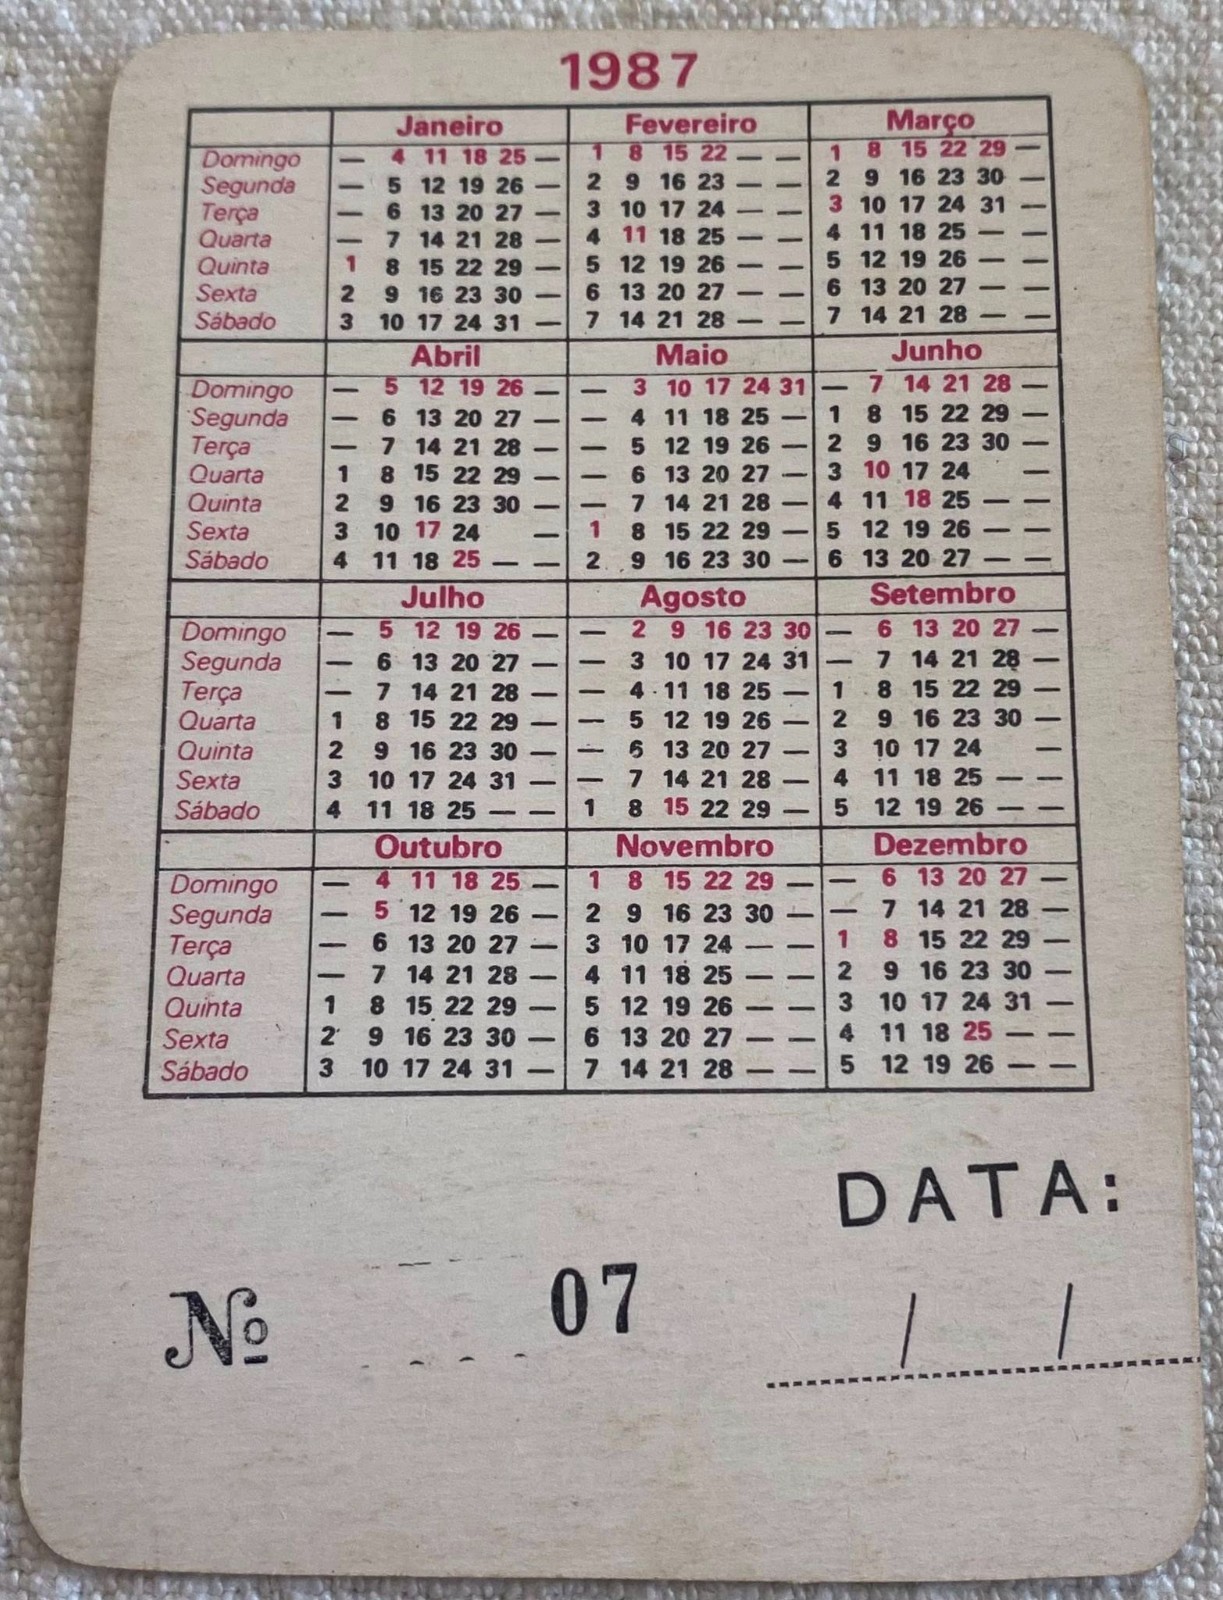 1987
Janeiro Fevereiro Março
Domingo — 4 11 18 25 — 1 8 15 22 — — 1 8 15 22 29 —
Segunda — 5 12 19 26 — 2 9 16 23 — — 2 9 16 23 30 —
Terça — 6 13 20 27 — 3 10 17 24 — — 3 10 17 24 31 —
Quarta — 7 14 21 28 — 4 11 18 25 — — 4 11 18 25 — —
Quinta 1 8 15 22 29 — 5 12 19 26 — — 5 12 19 26 — —
Sexta 2 9 16 23 30 — 6 13 20 27 — — 6 13 20 27 — —
Sábado 3 10 17 24 31 — 7 14 21 28 — — 7 14 21 28 — —
Abril Maio Junho
Domingo — 5 12 19 26 — — 3 10 17 24 31 — 7 14 21 28 —
Segunda — 6 13 20 27 — — 4 11 18 25 — 1 8 15 22 29 —
Terça — 7 14 21 28 — — 5 12 19 26 — 2 9 16 23 30 —
Quarta 1 8 15 22 29 — — 6 13 20 27 — 3 10 17 24 —
Quinta 2 9 16 23 30 — — 7 14 21 28 — 4 11 18 25 — —
Sexta 3 10 17 24 — 1 8 15 22 29 — 5 12 19 26 — —
Sábado 4 11 18 25 — — 2 9 16 23 30 — 6 13 20 27 — —
Julho Agosto Setembro
Domingo — 5 12 19 26 — — 2 9 16 23 30 — 6 13 20 27 —
Segunda — 6 13 20 27 — — 3 10 17 24 31 — 7 14 21 28 —
Terça — 7 14 21 28 — — 4 11 18 25 — 1 8 15 22 29 —
Quarta 1 8 15 22 29 — — 5 12 19 26 — 2 9 16 23 30 —
Quinta 2 9 16 23 30 — — 6 13 20 27 — 3 10 17 24 —
Sexta 3 10 17 24 31 — — 7 14 21 28 — 4 11 18 25 — —
Sábado 4 11 18 25 — — 1 8 15 22 29 — 5 12 19 26 — —
Outubro Novembro Dezembro
Domingo — 4 11 18 25 — 1 8 15 22 29 — — 6 13 20 27 —
Segunda — 5 12 19 26 — 2 9 16 23 30 — — 7 14 21 28 —
Terça — 6 13 20 27 — 3 10 17 24 — — 1 8 15 22 29 —
Quarta — 7 14 21 28 — 4 11 18 25 — — 2 9 16 23 30 —
Quinta 1 8 15 22 29 — 5 12 19 26 — — 3 10 17 24 31 —
Sexta 2 9 16 23 30 — 6 13 20 27 — — 4 11 18 25 — —
Sábado 3 10 17 24 31 — 7 14 21 28 — — 5 12 19 26 — —
DATA:
Nº 07 / /